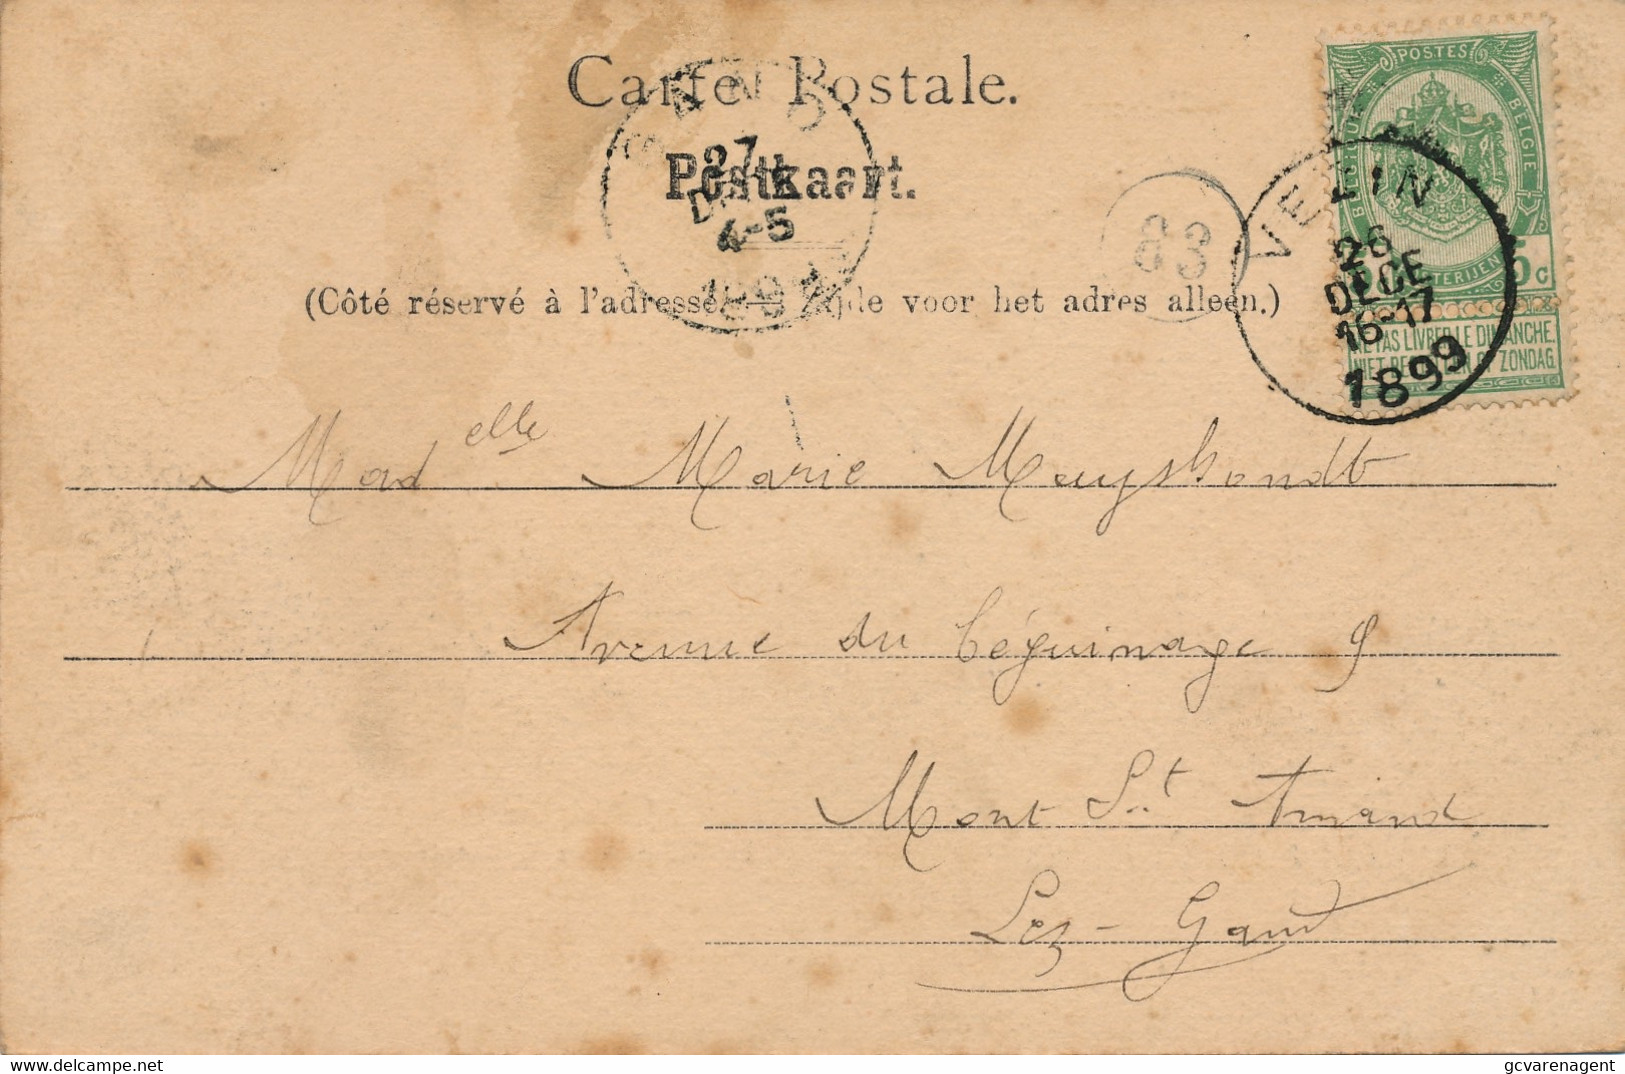 Carte Postale.
Postkaart.
(Côté réservé à l'adresse — Zijde voor het adres alleen.)
GAND
27
4-5
63
POSTES
BELGIE
5 c
NE PAS LIVRER LE DIMANCHE.
NIET BESTELLEN OP ZONDAG.
VEZIN
26
DECE
16-17
1899
Madelle Marie Muyshondt
Avenue du béguinage 9
Mont St Amand
Lez-Gand
delcampe.net
gcvarenagent